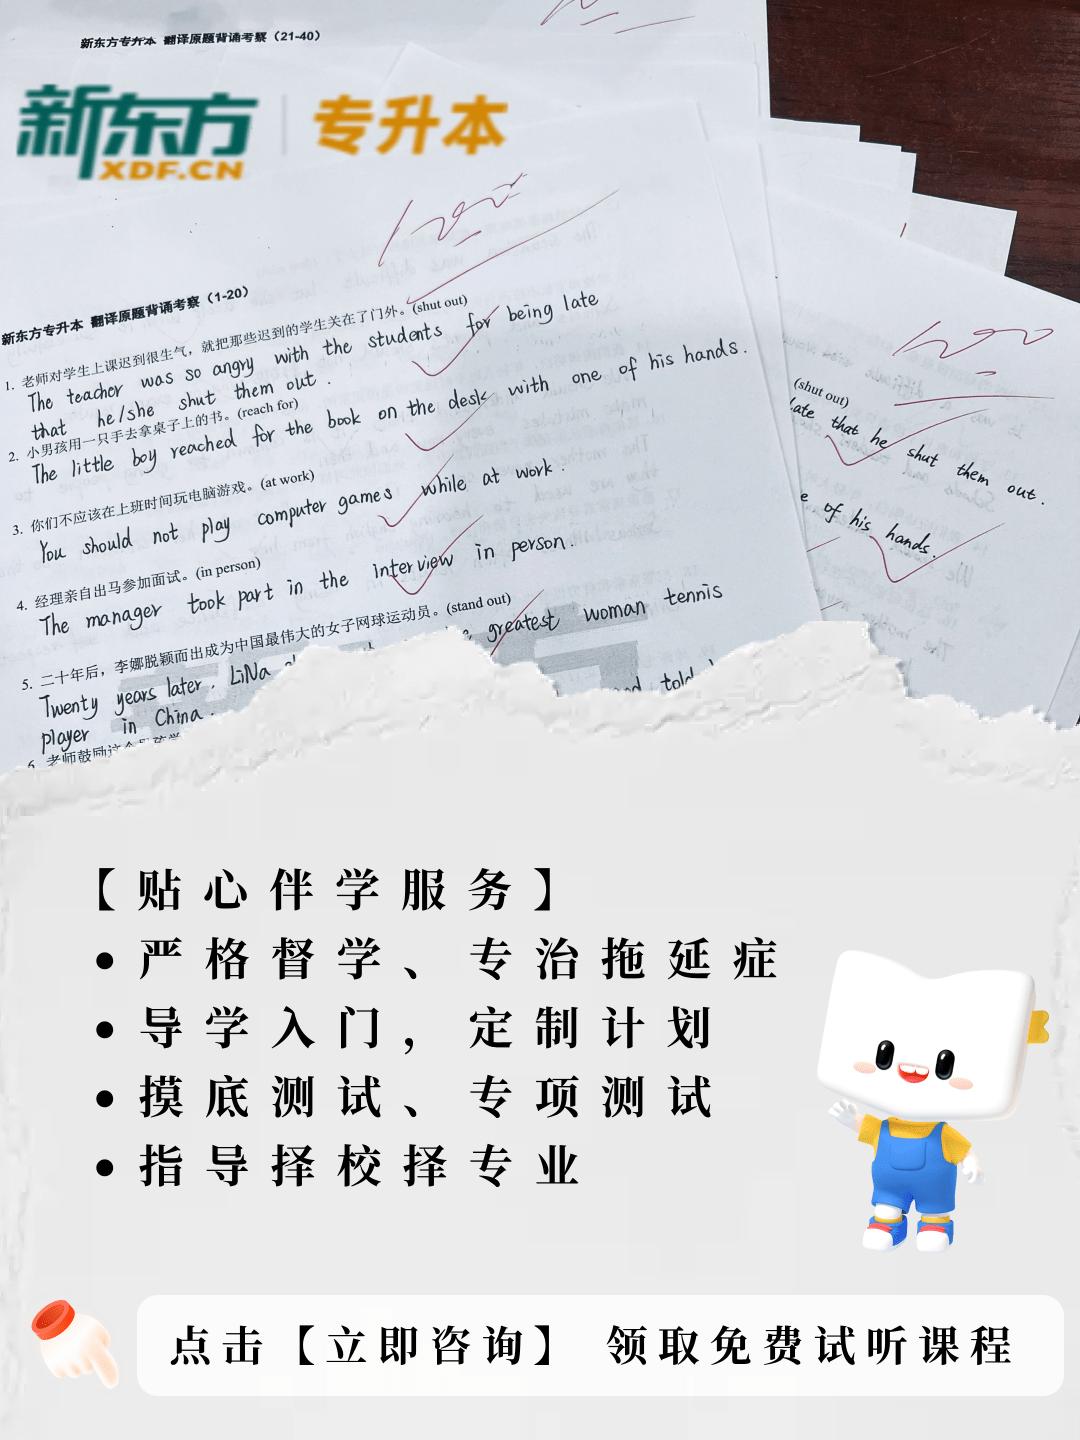 新东方专升本 翻译原题背诵考察（21-40）
新东方 | 专升本
XDF.CN
100
新东方专升本 翻译原题背诵考察（1-20）
1. 老师对学生上课迟到很生气，就把那些迟到的学生关在了门外。(shut out)
The teacher was so angry with the students for being late
that he/she shut them out.
2. 小男孩用一只手去拿桌子上的书。(reach for)
The little boy reached for the book on the desk with one of his hands.
3. 你们不应该在上班时间玩电脑游戏。(at work)
You should not play computer games while at work.
4. 经理亲自出马参加面试。(in person)
The manager took part in the interview in person.
5. 二十年后，李娜脱颖而出成为中国最伟大的女子网球运动员。(stand out)
Twenty years later. LiNa
greatest woman tennis
player in China.
told
6. 老师鼓励这个
100
(shut out)
late that he shut them out.
e of his hands.
【贴心伴学服务】
• 严格督学、专治拖延症
• 导学入门，定制计划
• 摸底测试、专项测试
• 指导择校择专业
点击【立即咨询】 领取免费试听课程